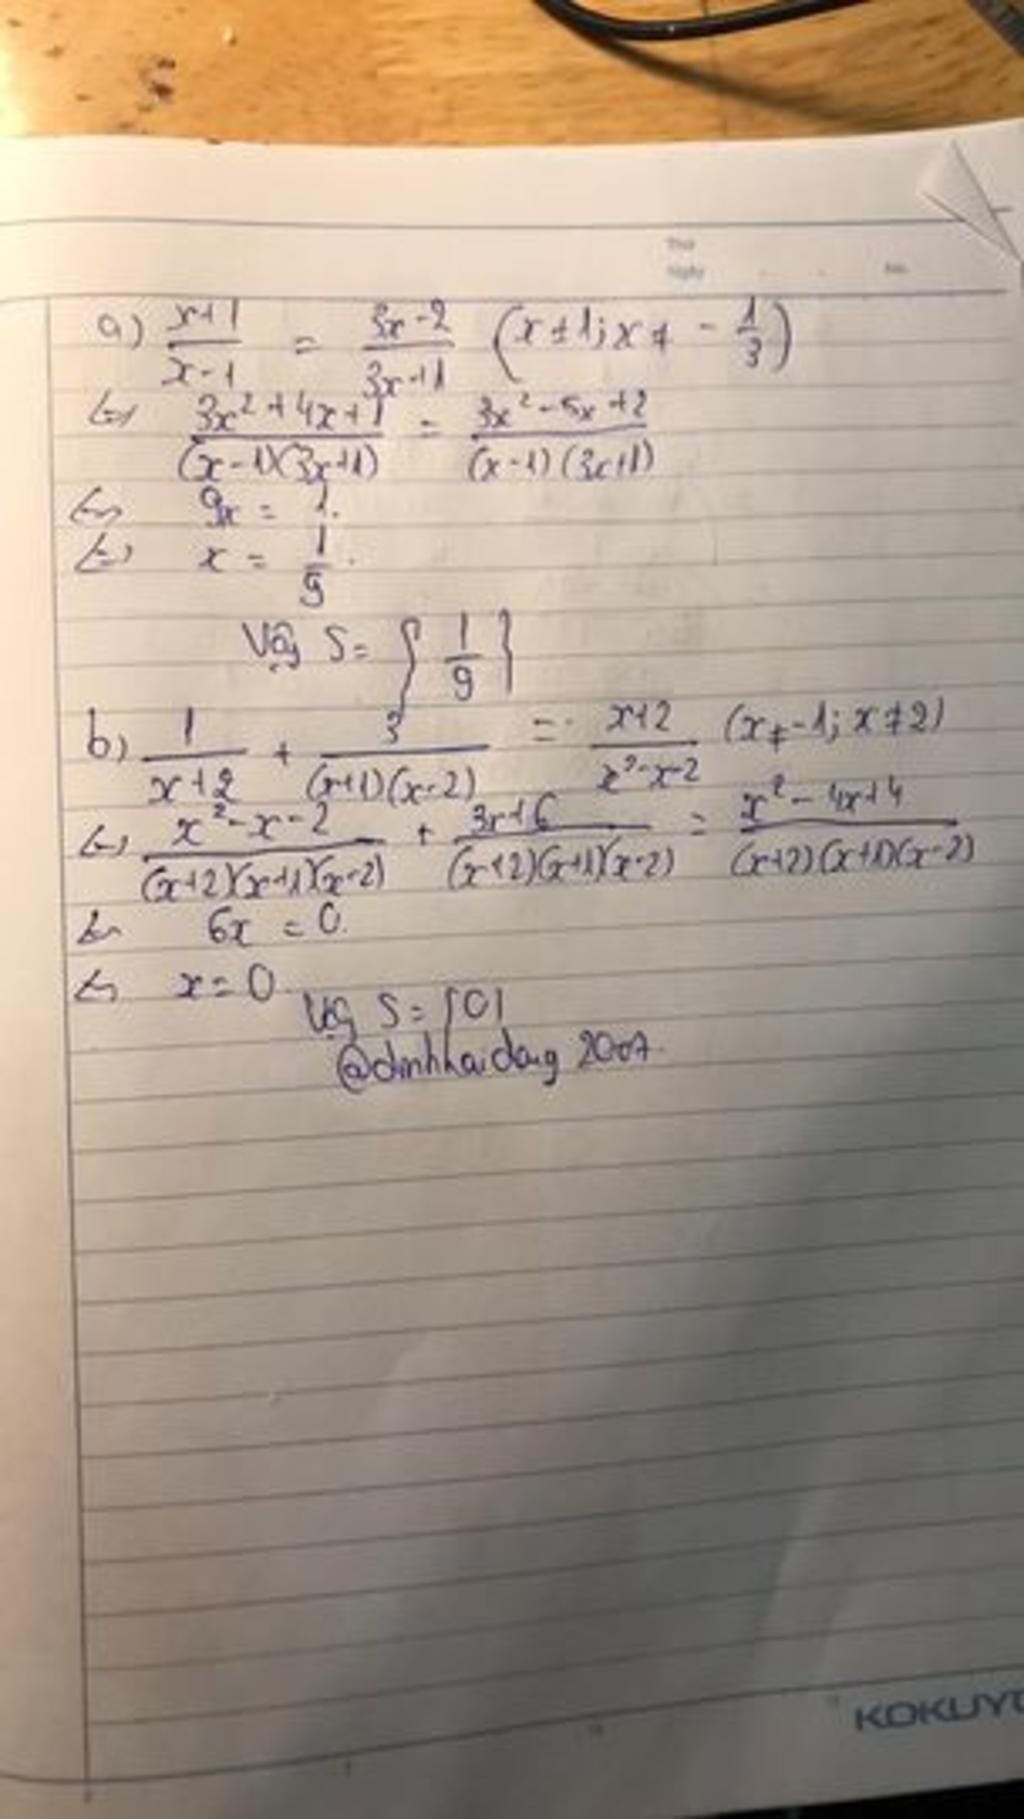 Thứ
Ngày No.
a) x+1/x-1 = 3x-2/3x+1 (x≠1; x≠ -1/3)
<=> 3x²+4x+1/(x-1)(3x+1) = 3x²-5x+2/(x-1)(3x+1)
<=> 9x = 1.
<=> x = 1/9.
Vậy S = {1/9}
b) 1/x+2 + 3/(x+1)(x-2) = x+2/x²-x-2 (x≠-1; x≠2)
<=> x²-x-2/(x+2)(x+1)(x-2) + 3x+6/(x+2)(x+1)(x-2) = x²-4x+4/(x+2)(x+1)(x-2)
<=> 6x = 0.
<=> x = 0
Vậy S = {0}
@dinhhaidang 2007.
KOKUYO